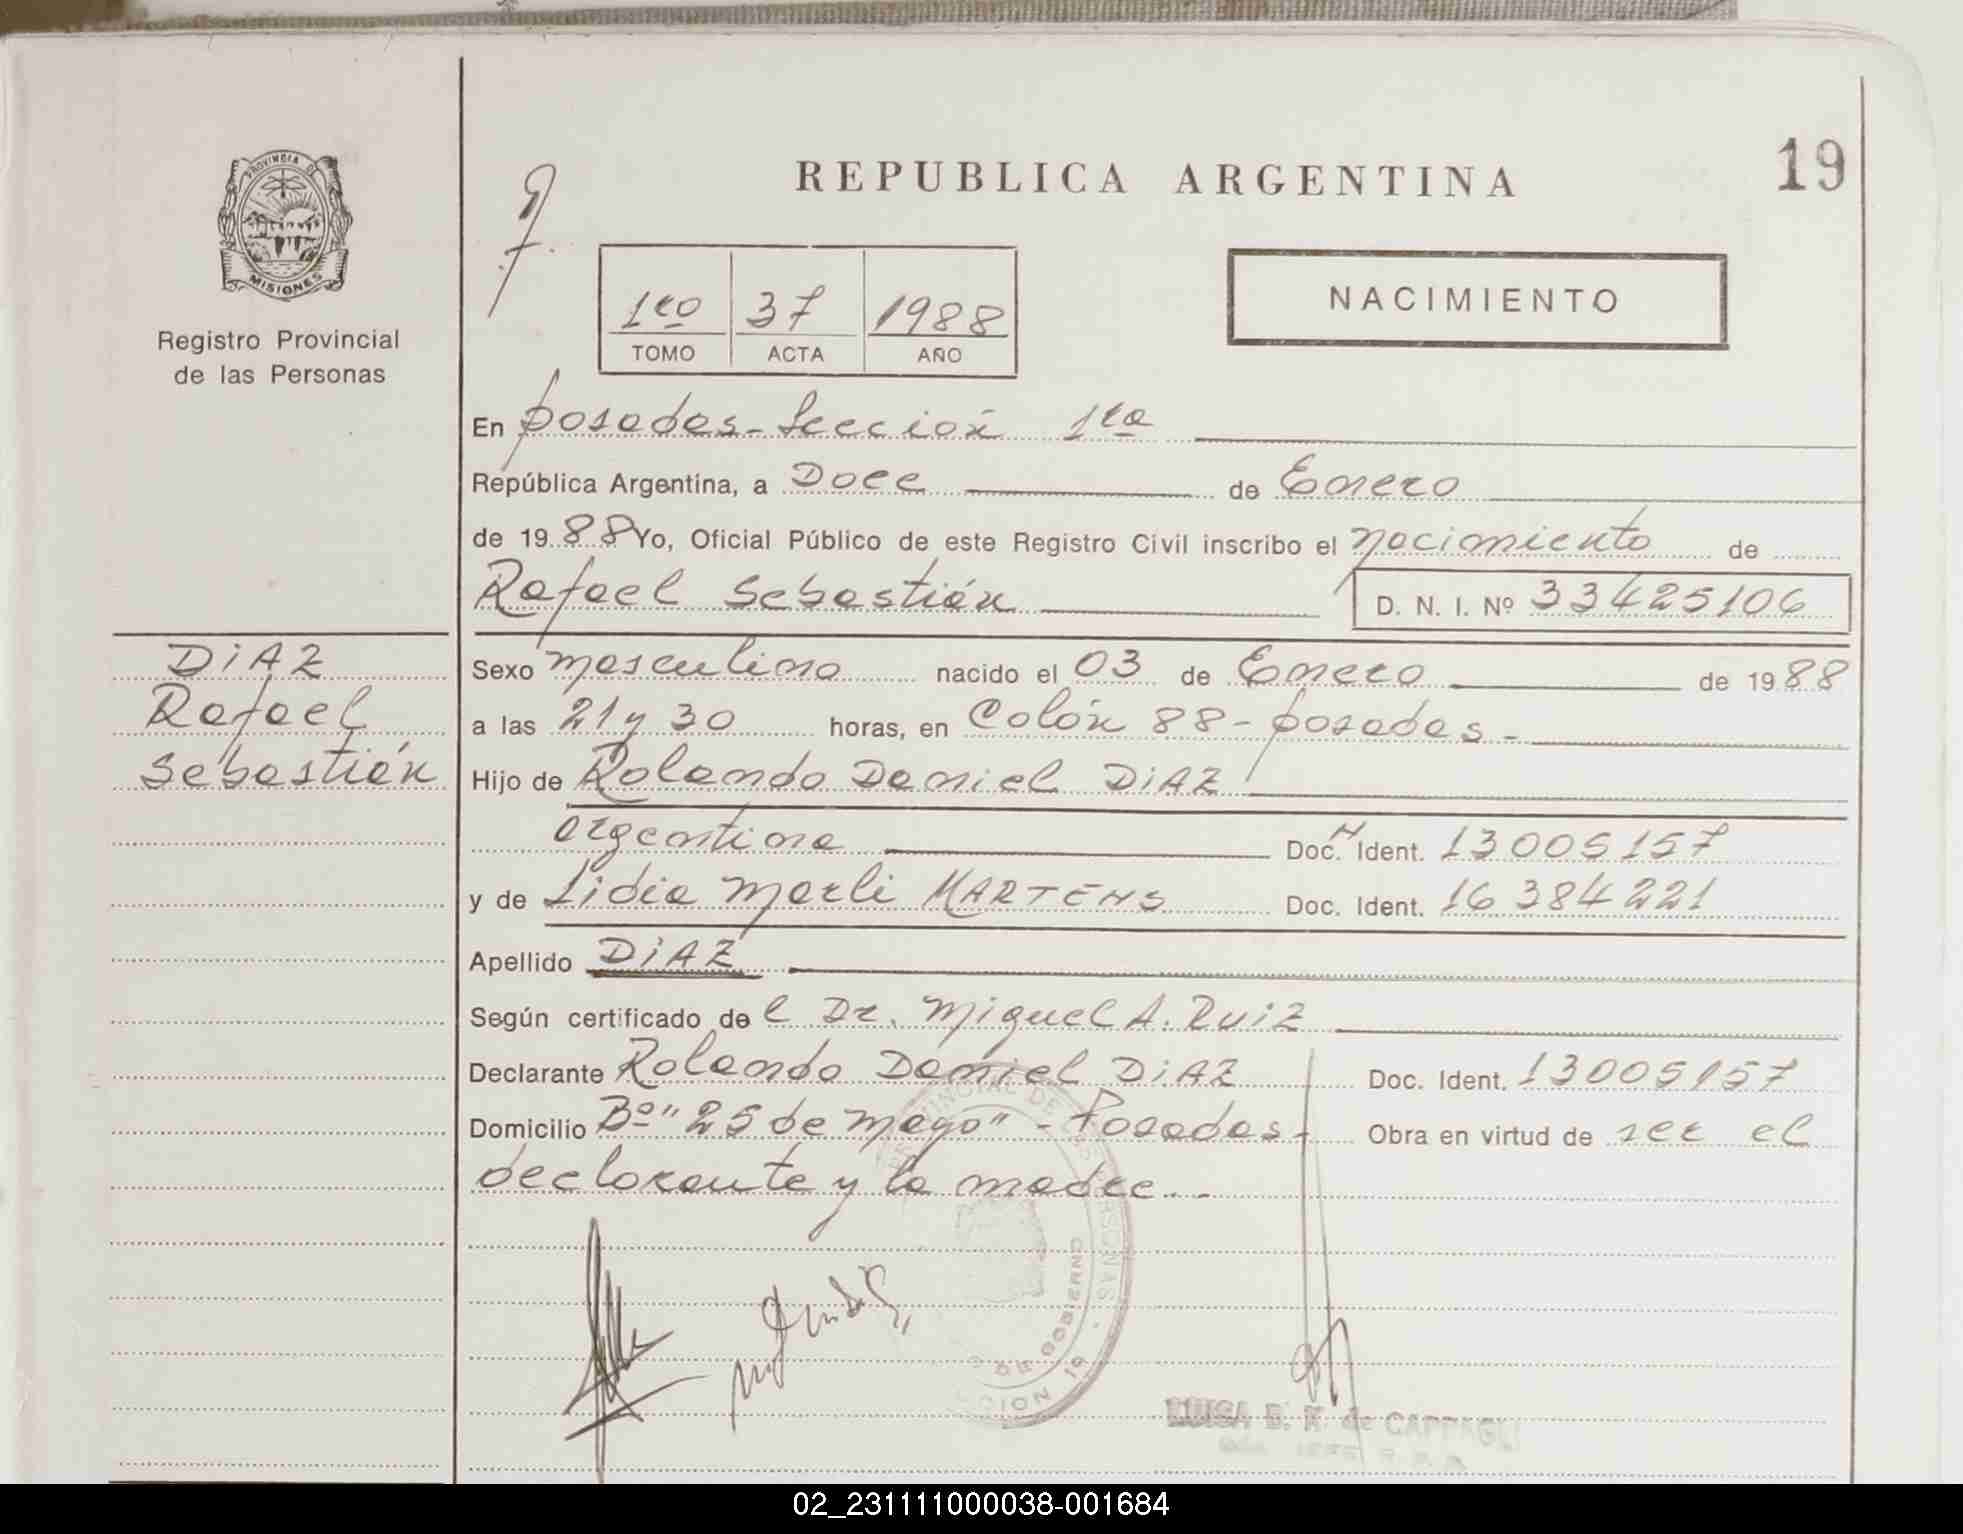 REPUBLICA ARGENTINA
19
PROVINCIA DE
MISIONES
Registro Provincial
de las Personas
1ro 37 1988
TOMO ACTA AÑO
NACIMIENTO
En Posadas - Sección 1ra
República Argentina, a Doce de Enero
de 1988 Yo, Oficial Público de este Registro Civil inscribo el nacimiento de
Rafael Sebastián D. N. I. Nº 33425106
DiAZ
Rafael
Sebastián
Sexo masculino nacido el 03 de Enero de 1988
a las 21 y 30 horas, en Colón 88 - Posadas -
Hijo de Rolando Daniel DiAZ
argentina Doc. Ident. 13005157
y de Lidia Marli MARTENS Doc. Ident. 16 384 221
Apellido DiAZ
Según certificado del Dr. Miguel A. Ruiz
Declarante Rolando Daniel DiAZ Doc. Ident. 13005157
Domicilio Bº "25 de Mayo" - Posadas - Obra en virtud de ser el
declarante y la madre. -
DE GOBIERNO
LUISA B. de
02_231111000038-001684